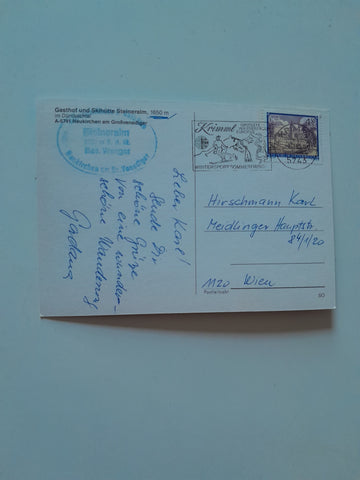 Gasthof und Skihütte Steineralm, 1650 m
im Dürnbachtal
A-5741 Neukirchen am Großvenediger
Steineralm
Bes. Wanger
Neukirchen am Gr. Venediger
Lieber Karl!
Sende Dir
schöne Grüße
von einer wunder-
schönen Wanderung
Gordana
Krimml
WINTERSPORT SOMMERFRING
5743
Hirschmann Karl
Meidlinger Hauptstr
84/1/20
1120 Wien
Postleitzahl